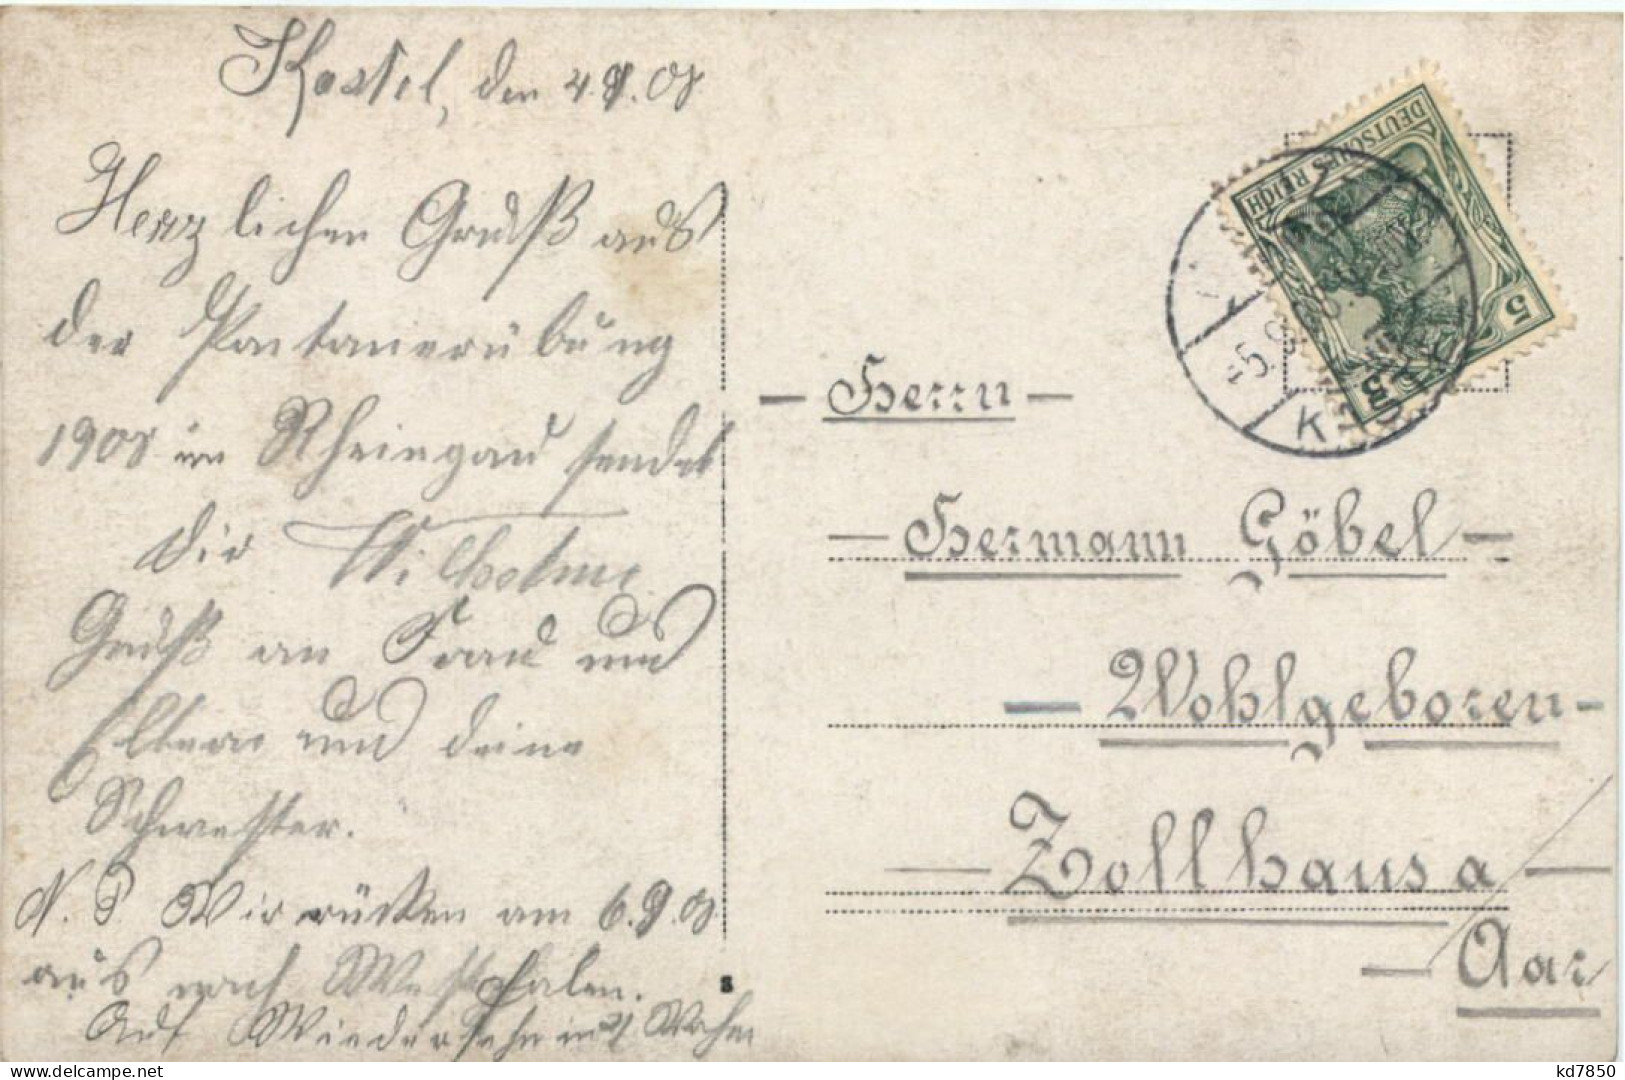 Kastel, den 4.9.08
Herzlichen Gruß aus
der Pontonerübung
1908 im Rheingau sendet
dir Wilhelm
Gruß an Frau und
Eltern und deine
Schwester.
N. B. Wir rücken am 6.9.08
aus nach Westfalen.
Auf Wiedersehn in
DEUTSCHES REICH
5
5
-5.9.08
K
- Herrn -
- Hermann Göbel -
- Wohlgeboren -
- Zollhaus a/
- Aar
s
delcampe.net
kd7850